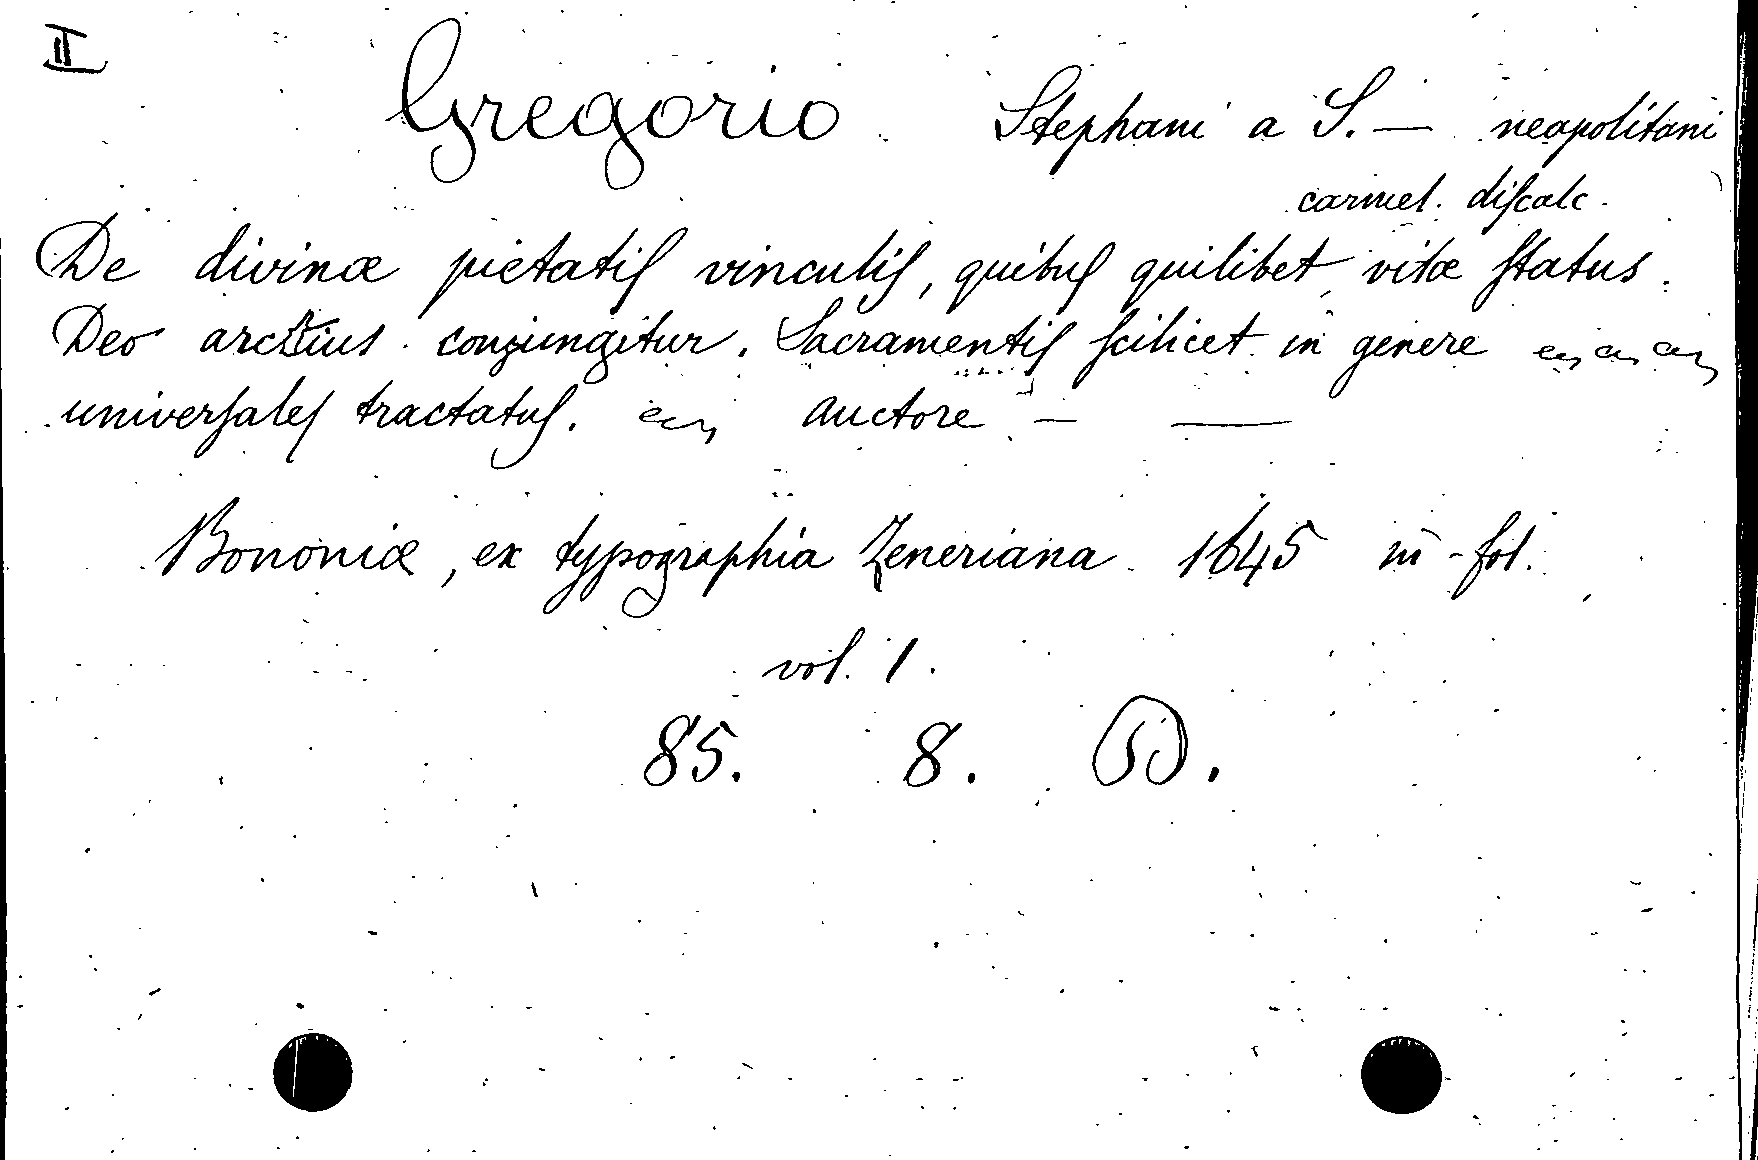 II
Gregorio Stephani a S. — neapolitani
carmel. discalc.
De divinæ pietatis vinculis, quibus quilibet vitæ status
Deo arctius conjungitur. Sacramentis scilicet in genere
universales tractatus. auctore — —
Bononiæ, ex typographia Zeneriana 1645 in-fol.
vol. 1.
85. 8. D.